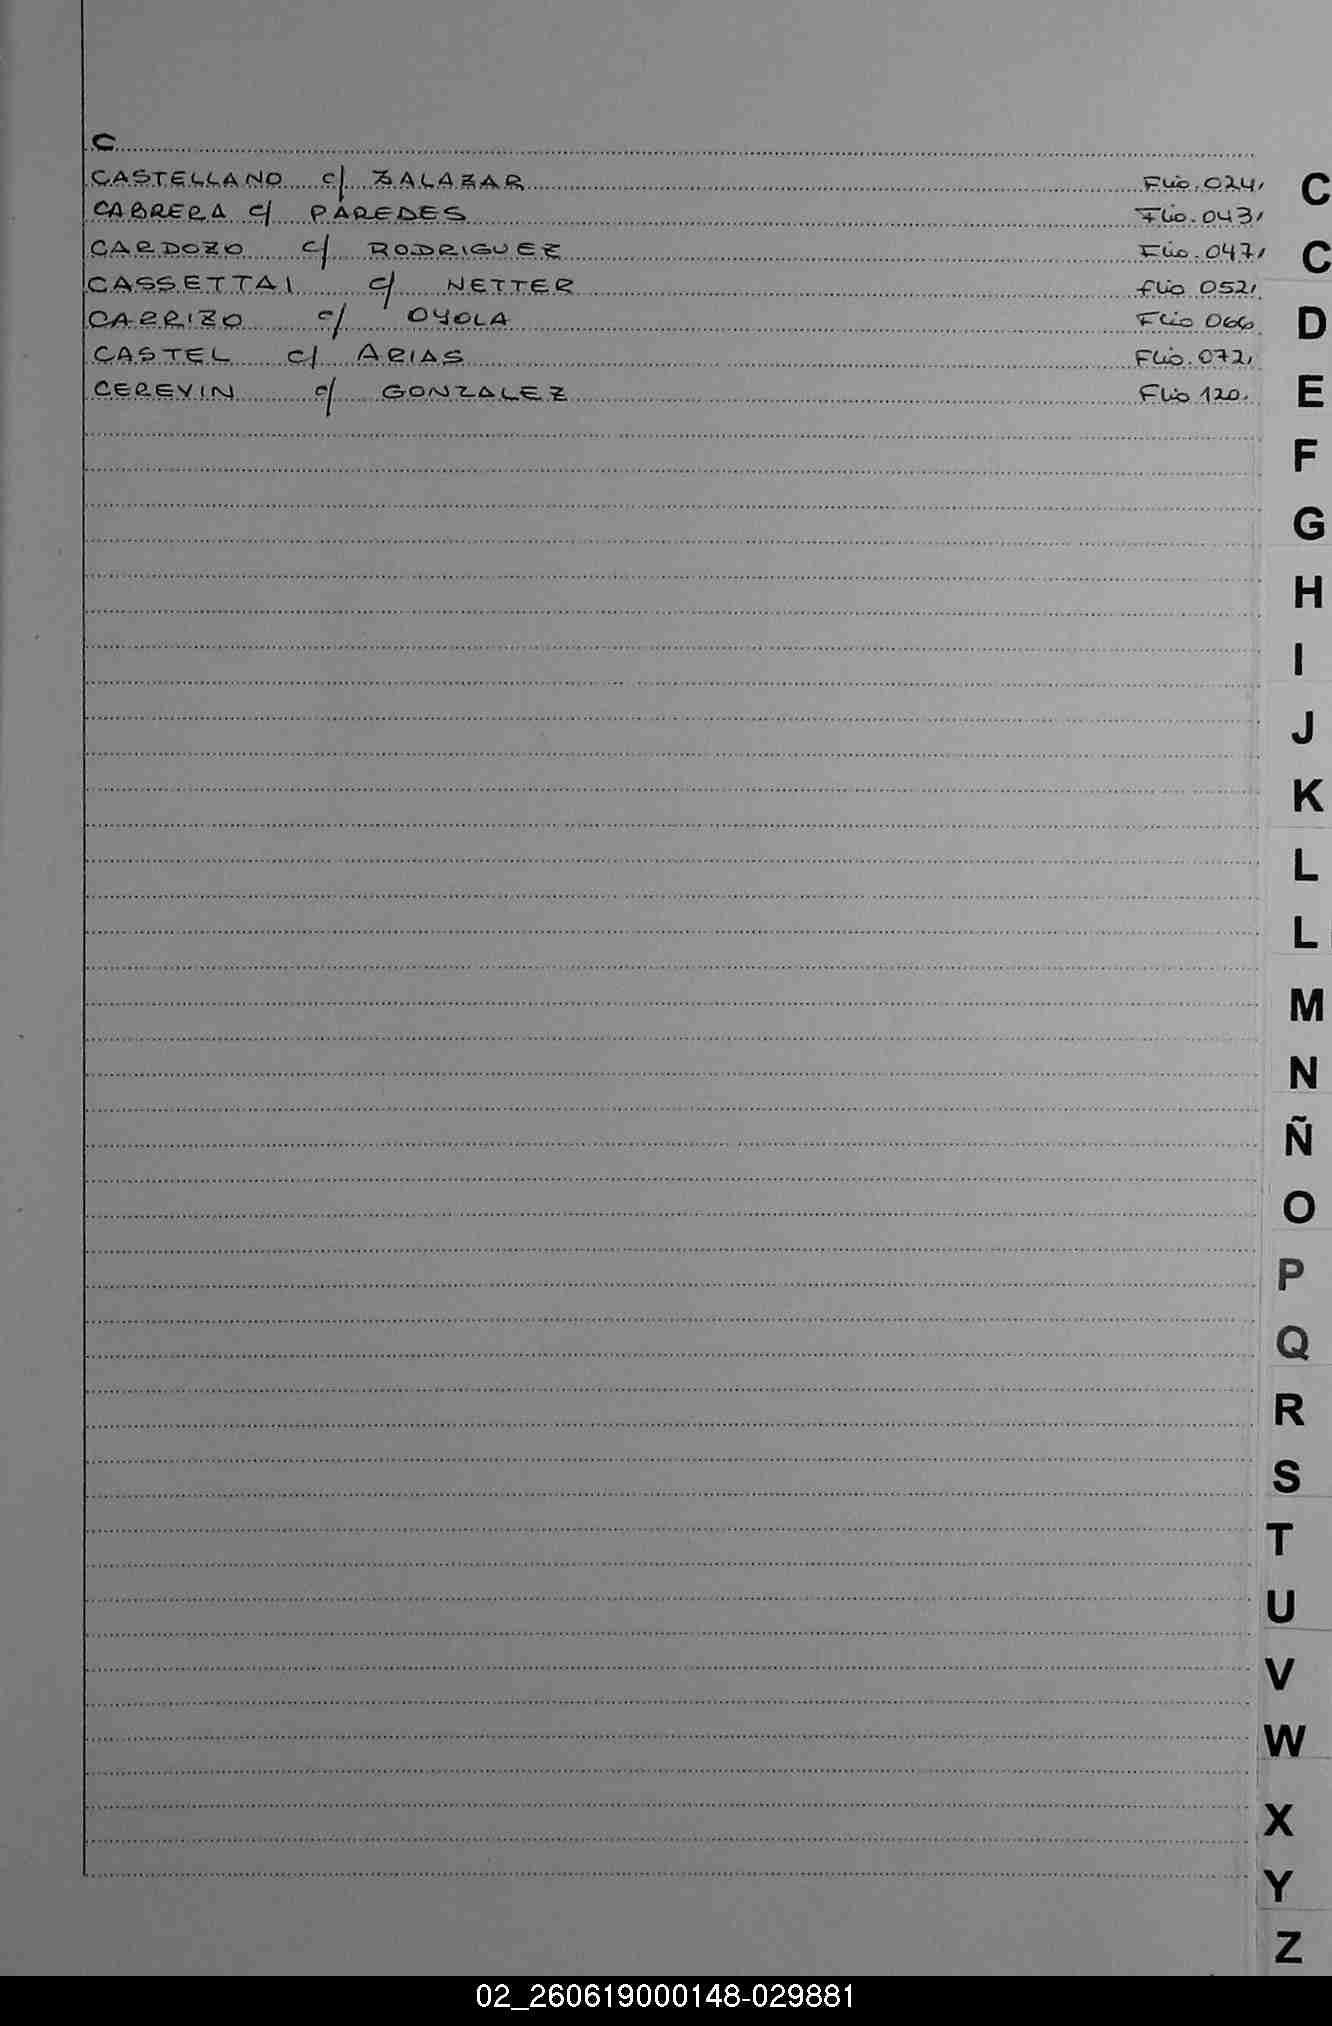 C
CASTELLANO c/ ZALAZAR Flio. 024,
CABRERA c/ PAREDES Flio. 043,
CARDOZO c/ RODRIGUEZ Flio. 047,
CASSETTAI c/ NETTER flio 052,
CARRIZO c/ OYOLA Flio 066.
CASTEL c/ ARIAS Flio. 072,
CEREVIN c/ GONZALEZ Flio 120.
C
C
D
E
F
G
H
I
J
K
L
L
M
N
Ñ
O
P
Q
R
S
T
U
V
W
X
Y
Z
02_260619000148-029881